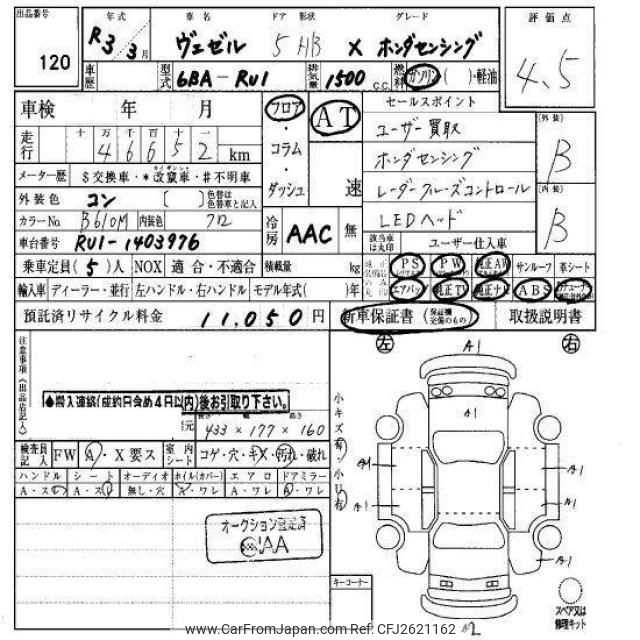 出品番号 年式 車名 ドア 形状 グレード 評価点
120 R3 3月 ヴェゼル 5 HB X ホンダセンシング 4.5
車歴 型式 6BA-RU1 排気量 1500 C.C. 燃料 ガソリン・( )・軽油
車検 年 月 フロア・コラム・ダッシュ AT 速 セールスポイント
ユーザー買取
走行 十 万 千 百 十 一
46652 km
ホンダセンシング
メーター歴 $交換車・*改竄車・#不明車
レーダークルーズコントロール
外装色 コン [ ] 色替は色替車と記入
LEDヘッド
カラーNo. B610M 内装色 クロ
冷房 AAC 無
[外装] B
[内装] B
車台番号 RU1-1403976
該当車は丸印 ユーザー仕入車
乗車定員(5)人 NOX 適合・不適合 積載量 kg
PS PW 純正AW サンルーフ 革シート
輸入車 ディーラー・並行 左ハンドル・右ハンドル モデル年式( )年
エアバック 純正TV 純正ナビ ABS
預託済リサイクル料金 11,050円 新車保証書(保証欄完備のもの) 取扱説明書
左 右
注意事項(出品店記入)
●搬入連絡(成約日含め4日以内)後お引取り下さい。
長さ 幅 高さ
433 × 177 × 160
小キズ有・小凹有
検査員記入 FW A・X要ス 室内シート コゲ・穴・キズ・汚れ・破れ
ハンドル シート オーディオ ホイル(カバー) エアロ ドアミラー
A・スレ A・スレ 無し・穴 A・ワレ A・ワレ A・ワレ
オークション認定済
CIAA
A1
A1
A1
A1
A1
A1
A1
A2
キーコーナー
スペア又は修理キット
www.CarFromJapan.com Ref: CFJ2621162